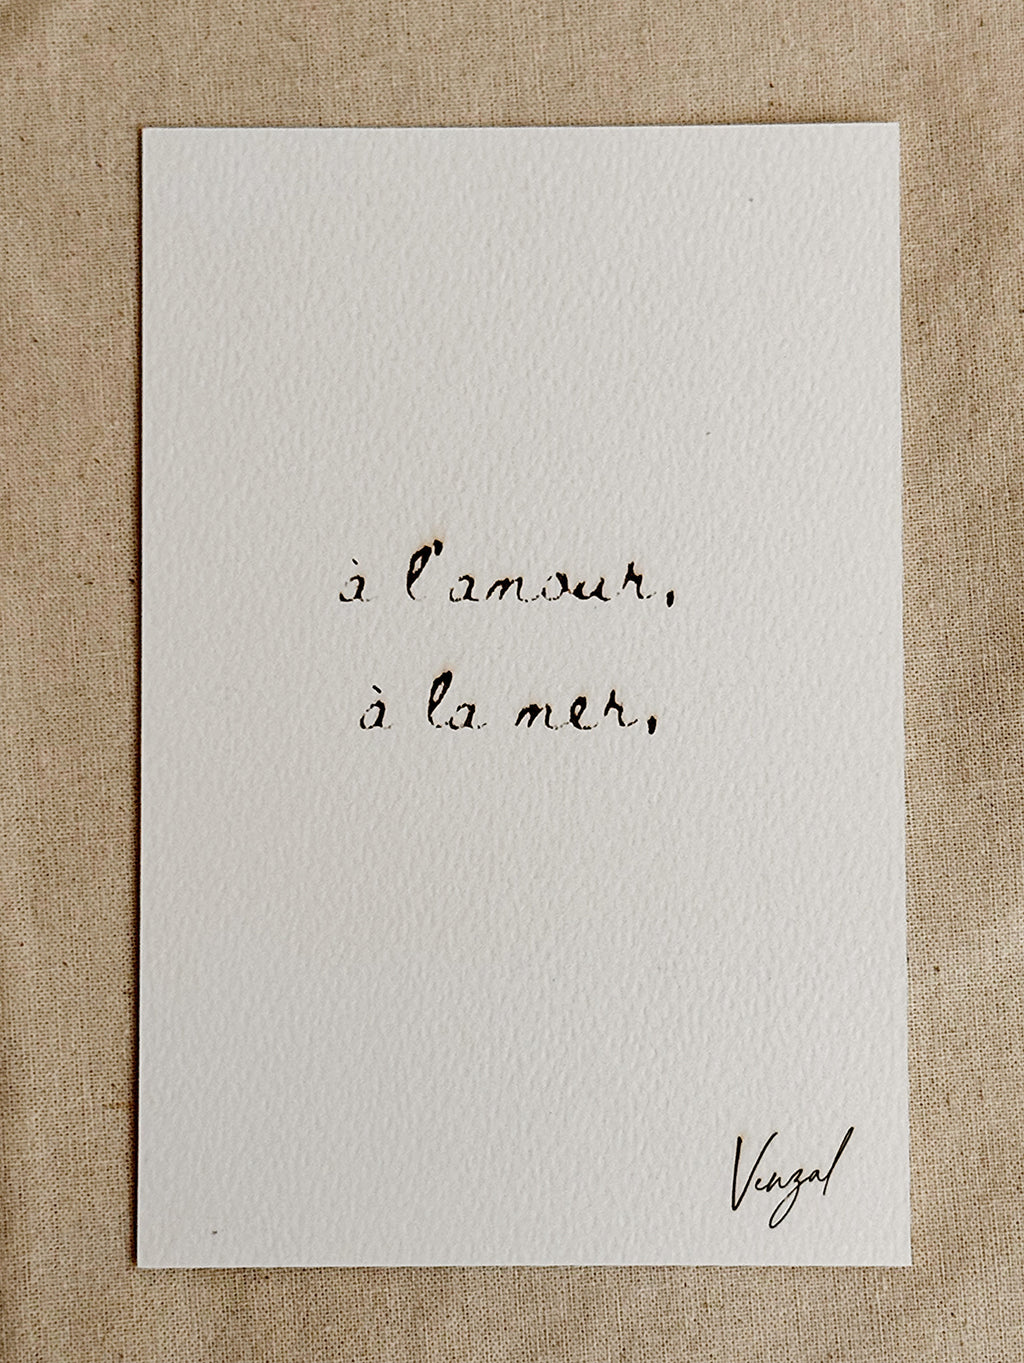 à l'amour,
à la mer,
Venzal